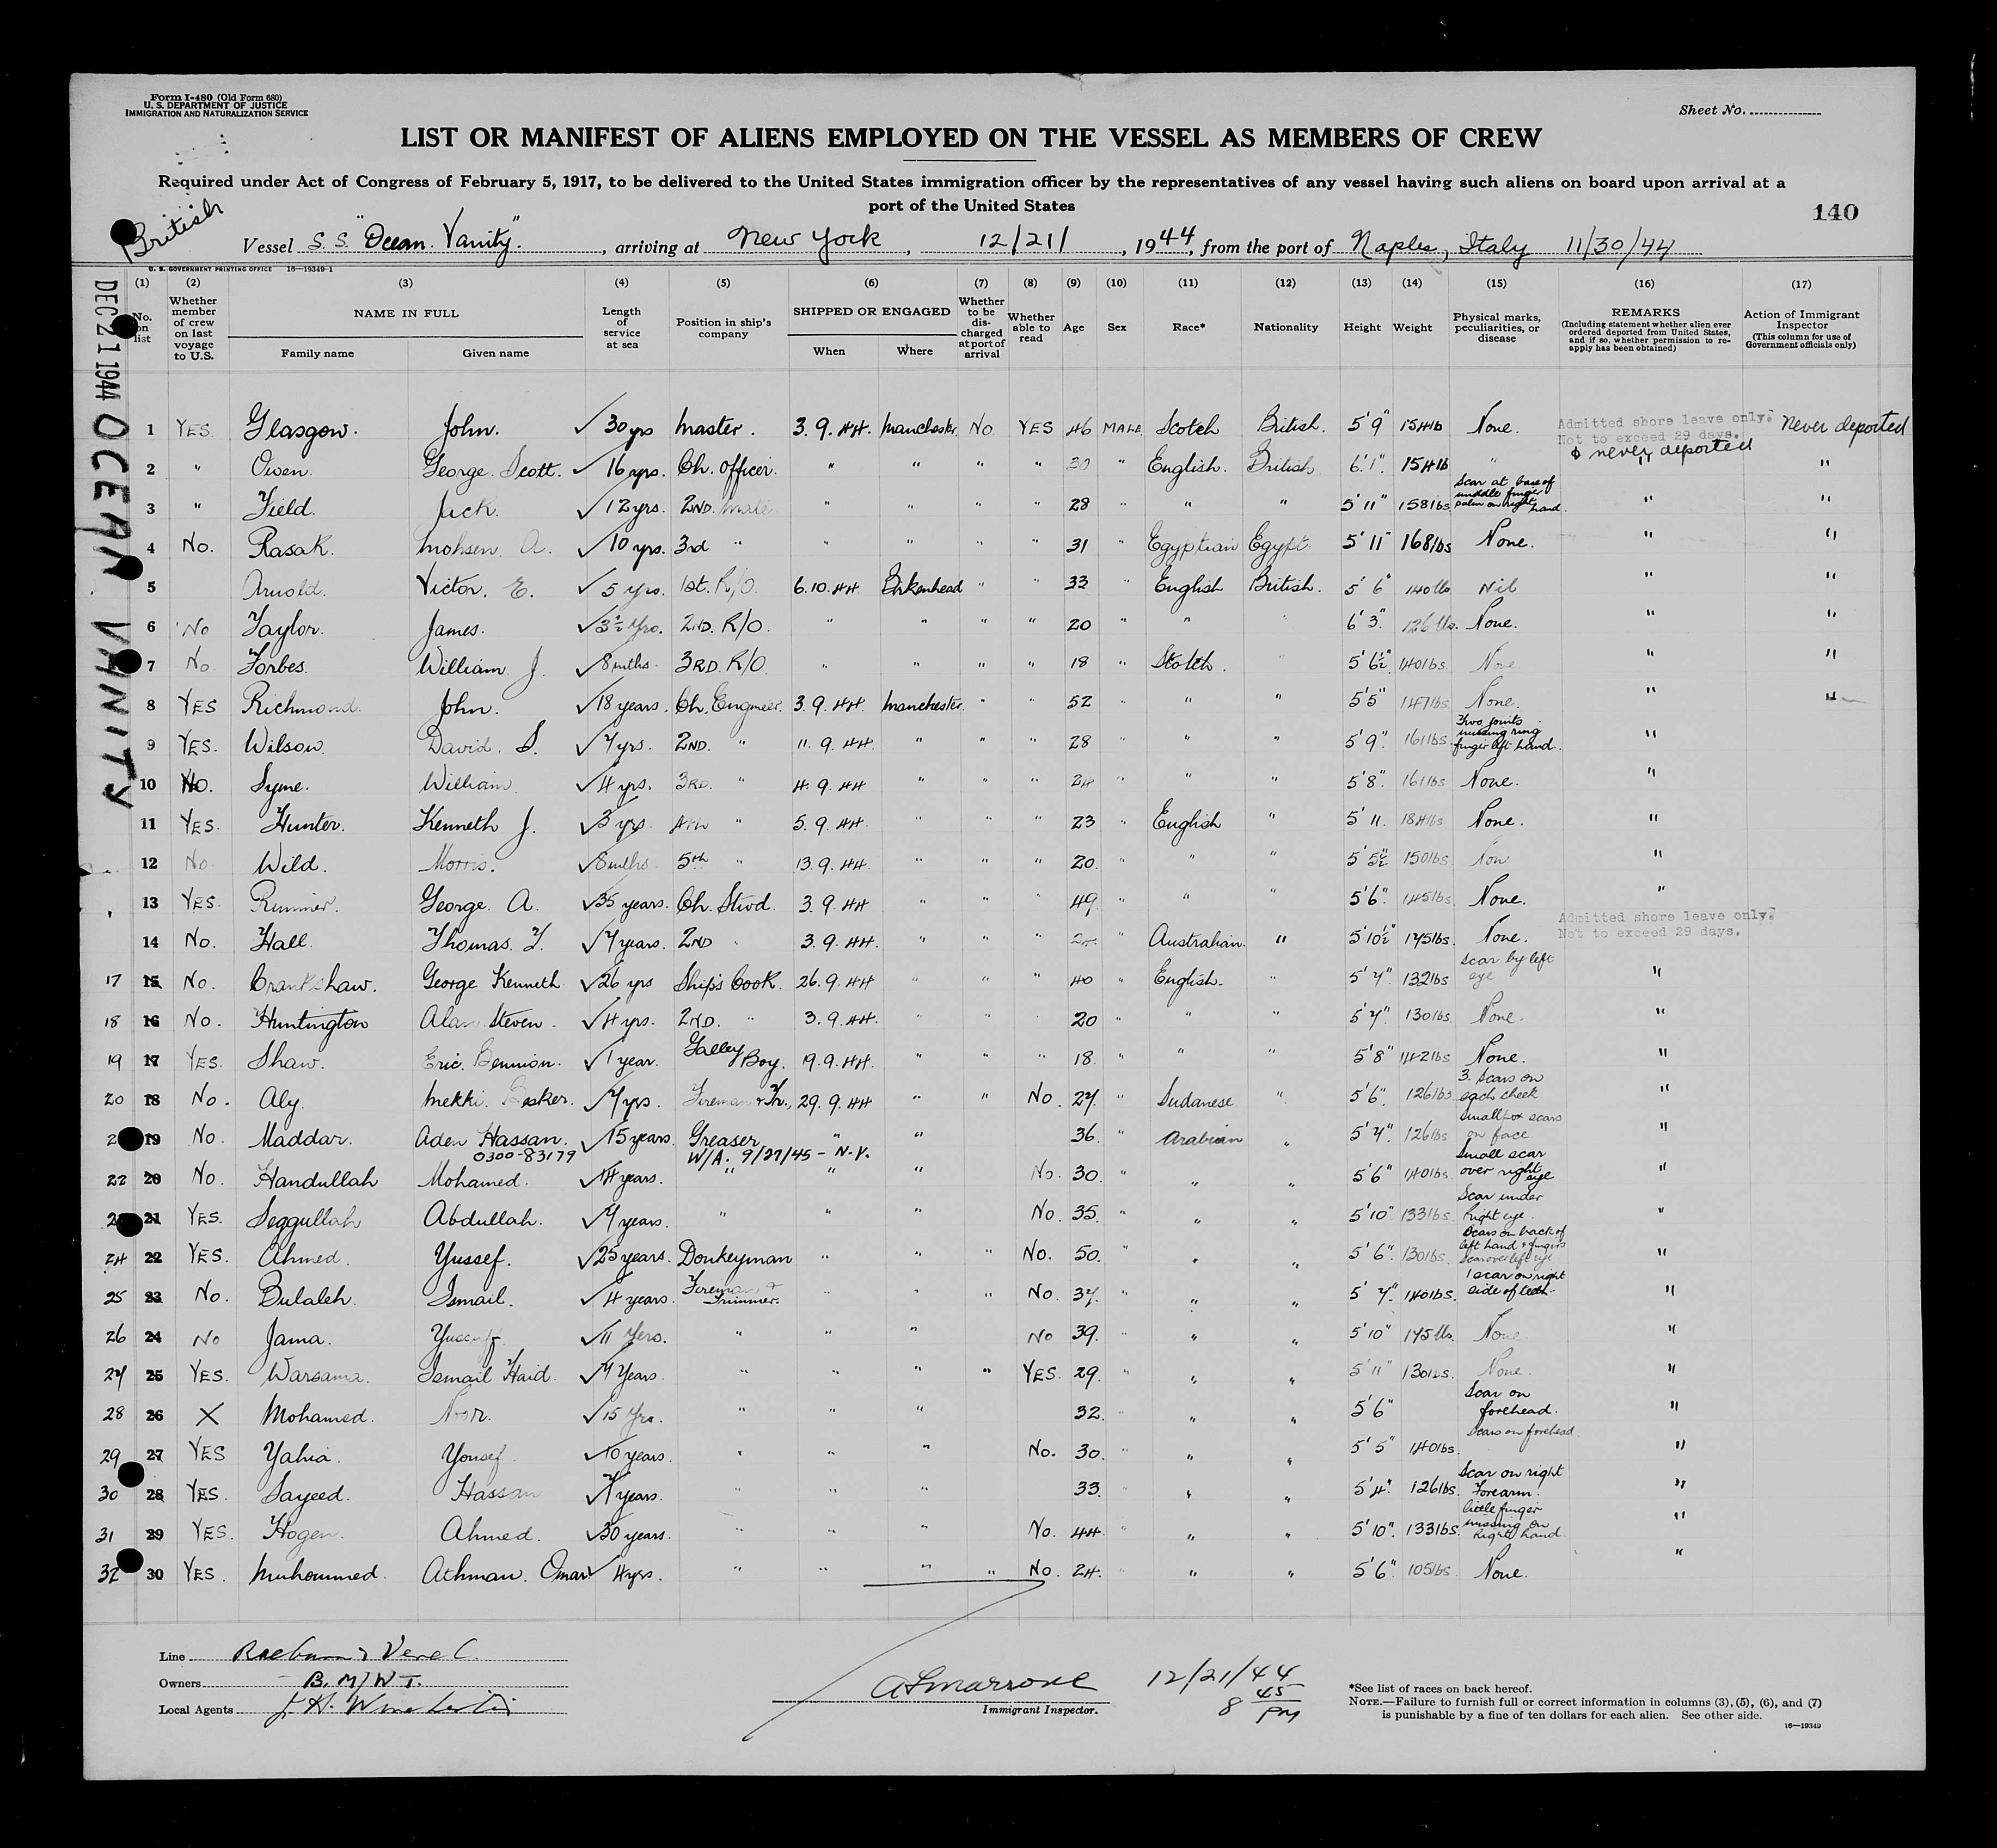 Form I-480 (Old Form 680)
U. S. DEPARTMENT OF JUSTICE
IMMIGRATION AND NATURALIZATION SERVICE
Sheet No.
LIST OR MANIFEST OF ALIENS EMPLOYED ON THE VESSEL AS MEMBERS OF CREW
Required under Act of Congress of February 5, 1917, to be delivered to the United States immigration officer by the representatives of any vessel having such aliens on board upon arrival at a
port of the United States
140
British
Vessel S.S. "Ocean Vanity". , arriving at New York , 12/21/ , 1944, from the port of Naples, Italy 11/30/44
U. S. GOVERNMENT PRINTING OFFICE 16—19349-1
DEC 21 1944 OCEAN VANITY
(1) (2) (3) (4) (5) (6) (7) (8) (9) (10) (11) (12) (13) (14) (15) (16) (17)
No. on list
Whether member of crew on last voyage to U.S.
NAME IN FULL
Family name Given name
Length of service at sea
Position in ship's company
SHIPPED OR ENGAGED
When Where
Whether to be discharged at port of arrival
Whether able to read
Age
Sex
Race*
Nationality
Height
Weight
Physical marks, peculiarities, or disease
REMARKS
(Including statement whether alien ever ordered deported from United States, and if so, whether permission to re-apply has been obtained)
Action of Immigrant Inspector
(This column for use of Government officials only)
1 YES Glasgow. John. ✓ 30 yrs Master. 3.9.44. Manchester. NO YES 46 MALE Scotch British. 5'9" 154lb None. Admitted shore leave only. Not to exceed 29 days. Never deported
2 " Owen. George Scott. ✓ 16 yrs. Ch. Officer. " " " " 30 " English. British 6'.1". 154lb " & never deported "
3 " Field. Jack. ✓ 12 yrs. 2ND. Mate " " " " 28 " " " 5'11" 158lbs. Scar at base of middle finger palm on right hand. " "
4 No. Rasak. Mohsen A. ✓ 10 yrs. 3rd " " " " " 31 " Egyptian Egypt. 5'11" 168lbs None. " "
5 Arnold. Victor. E. ✓ 5 yrs. 1st. R/O. 6.10.44. Birkenhead " " 33 " English British. 5'6" 140lbs Nil " "
6 No Taylor. James. ✓ 3½ Yrs. 2ND. R/O. " " " " 20 " " " 6'3". 126 lbs. None. " "
7 No. Forbes. William J. ✓ 8mths. 3RD. R/O " " " " 18 " Scotch. " 5'6½" 140lbs. None " "
8 YES Richmond. John. ✓ 18 years. Ch. Engineer. 3.9.44. Manchester. " " 52 " " " 5'5" 147lbs None. " "
9 YES. Wilson. David. S. ✓ 7yrs. 2ND. " 11.9.44. " " " 28 " " " 5'9". 161lbs. Two joints missing ring finger left hand. "
10 No. Syme. William. ✓ 4 yrs. 3RD. " 4.9.44 " " " 24 " " " 5'8". 161lbs None. "
11 YES. Hunter. Kenneth J. ✓ 3 yrs. 4th " 5.9.44. " " " 23 " English " 5'11. 184lbs. None. "
12 No. Wild. Morris. ✓ 8mths. 5th " 13.9.44. " " " 20. " " " 5'5½" 150lbs. None "
13 YES. Rimmer. George. A. ✓ 35 years. Ch. Stwd. 3.9.44 " " " 49. " " " 5'6". 145lbs None. "
14 No. Hall. Thomas. ✓ 7years. 2ND " 3.9.44. " " " " Australian. " 5'10½" 175lbs. None. Admitted shore leave only. Not to exceed 29 days.
17 15 No. Crankshaw. George Kenneth ✓ 26 yrs Ships Cook. 26.9.44 " " " 40 " English. " 5'7". 132lbs Scar by left eye "
18 16 No. Huntington Alan Steven. ✓ 4 yrs. 2ND. " 3.9.44. " " " 20 " " " 5'7". 130lbs. None. "
19 17 YES. Shaw. Eric. Bennion. ✓ 1 year. Galley Boy. 19.9.44 " " " 18. " " " 5'8" 142lbs None. "
20 18 No. Aly. Mekki. ✓ 7yrs. Fireman & Tr., 29.9.44 " " No. 27. " Sudanese " 5'6". 126lbs. 3 Scars on each cheek "
2 19 No. Maddar. Aden Hassan. ✓ 15 years. Greaser " " 36. " Arabian " 5'7". 126lbs Smallpox scars on face. "
0300-83179 W/A. 9/27/45 - N.Y.
22 20 No. Handullah Mohamed. ✓ 14 years. " " " No. 30. " " 5'6" 140lbs. Small scar over right eye "
21 YES. Seggullah Abdullah. ✓ 7years. " " " No. 35. " " " 5'10". 133lbs. Scar under Right eye. "
24 22 YES. Ahmed. Yussef. ✓ 25 years. Donkeyman " " " No. 50. " " " 5'6". 130lbs. Scars on back of left hand & fingers scar over left eye "
25 23 No. Bulaleh. Ismail. ✓ 4 years. Fireman & Trimmer. " " " No. 37. " " " 5'7". 140lbs. 1 scar on right side of teeth. "
26 24 No Jama. Yussuff ✓ 11 Yers. " " " No 39. " " " 5'10" 175 lbs. None. "
27 25 YES. Warsama. Ismail Haid. ✓ 7 Years. " " " " YES. 29. " " 5'11" 130lbs. None. "
28 26 X Mohamed. Noor. ✓ 15 Yrs. " " " 32. " " " 5'6" Scar on forehead. "
29 27 YES Yahia. Yousef. ✓ 10 years. " " " No. 30. " " 5'5" 140lbs. Scars on forehead "
30 28 YES. Sayeed. Hassan ✓ 7 years. " " " 33. " " " 5'4". 126lbs. Scar on right Forearm. "
31 29 YES. Hogen. Ahmed. ✓ 30 years. " " " No. 44. " " " 5'10". 133lbs. little finger missing on Right hand "
32 30 YES. Muhoummed. Athman. Omar ✓ 4yrs. " " " " No. 24. " " " 5'6" 105lbs. None. "
Line Raeburn & Verel
Owners B. M/W T.
Local Agents
12/21/44
8 45 PM
Immigrant Inspector.
*See list of races on back hereof.
NOTE.—Failure to furnish full or correct information in columns (3), (5), (6), and (7)
is punishable by a fine of ten dollars for each alien. See other side.
16—19349